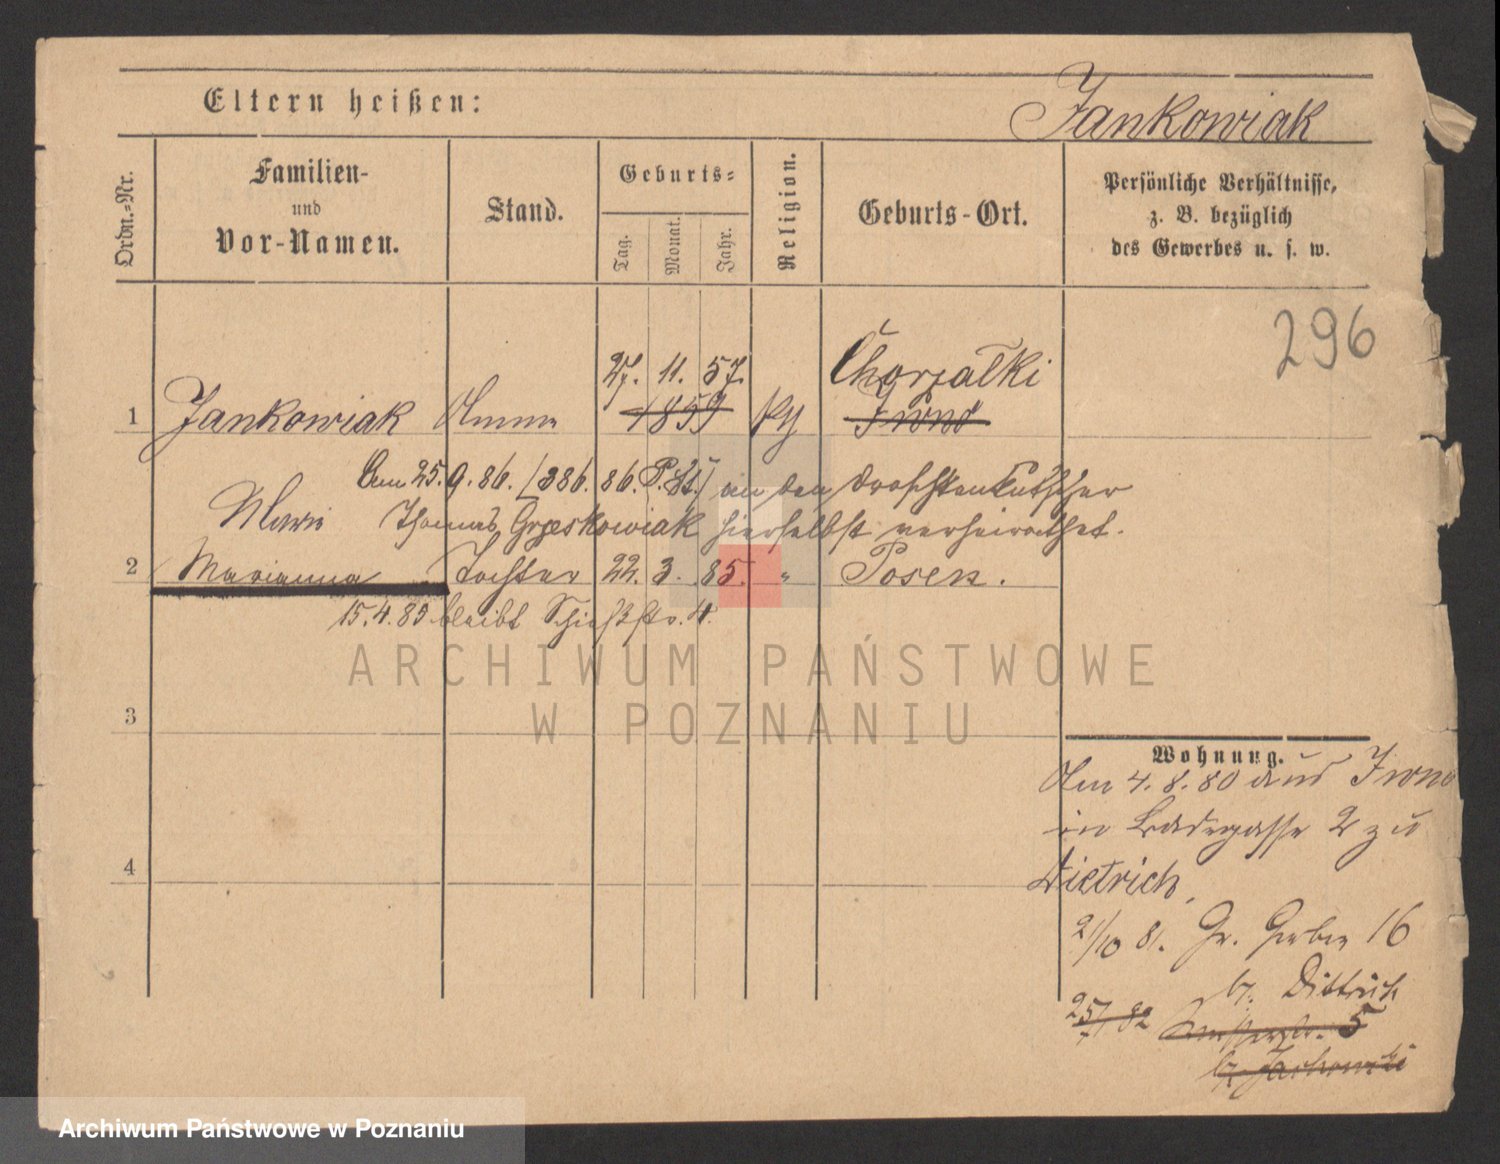 Eltern heißen:
Jankowiak
Ordn.-Nr.
Familien-
und
Vor-Namen.
Stand.
Geburts-
Tag.
Monat.
Jahr.
Religion.
Geburts-Ort.
Persönliche Verhältnisse,
z. B. bezüglich
des Gewerbes u. s. w.
296
27. 11. 57. Chorzałki
1 Jankowiak Amme 1859
Am 25. 9. 86. (386. 86. P. St.) an den Droschkenkutscher
Marie Thomas Grzeskowiak hierselbst verheirathet.
2 Marianna Tochter 22. 3. 85. " Posen.
15. 4. 85 bleibt Schießstr. 4.
ARCHIWUM PAŃSTWOWE
W POZNANIU
3
Wohnung.
Am 4. 8. 80 aus
in Badegasse 2 zu
4
Dietrich,
21/10 81. Gr. Gerber 16
b. Dittrich
82 5
b.
Archiwum Państwowe w Poznaniu